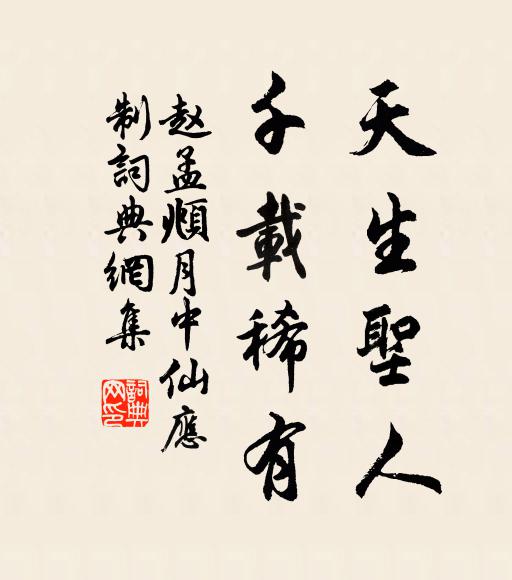 天生聖人
千載稀有
赵孟頫月中仙應
制詞典網集
詞典
网印